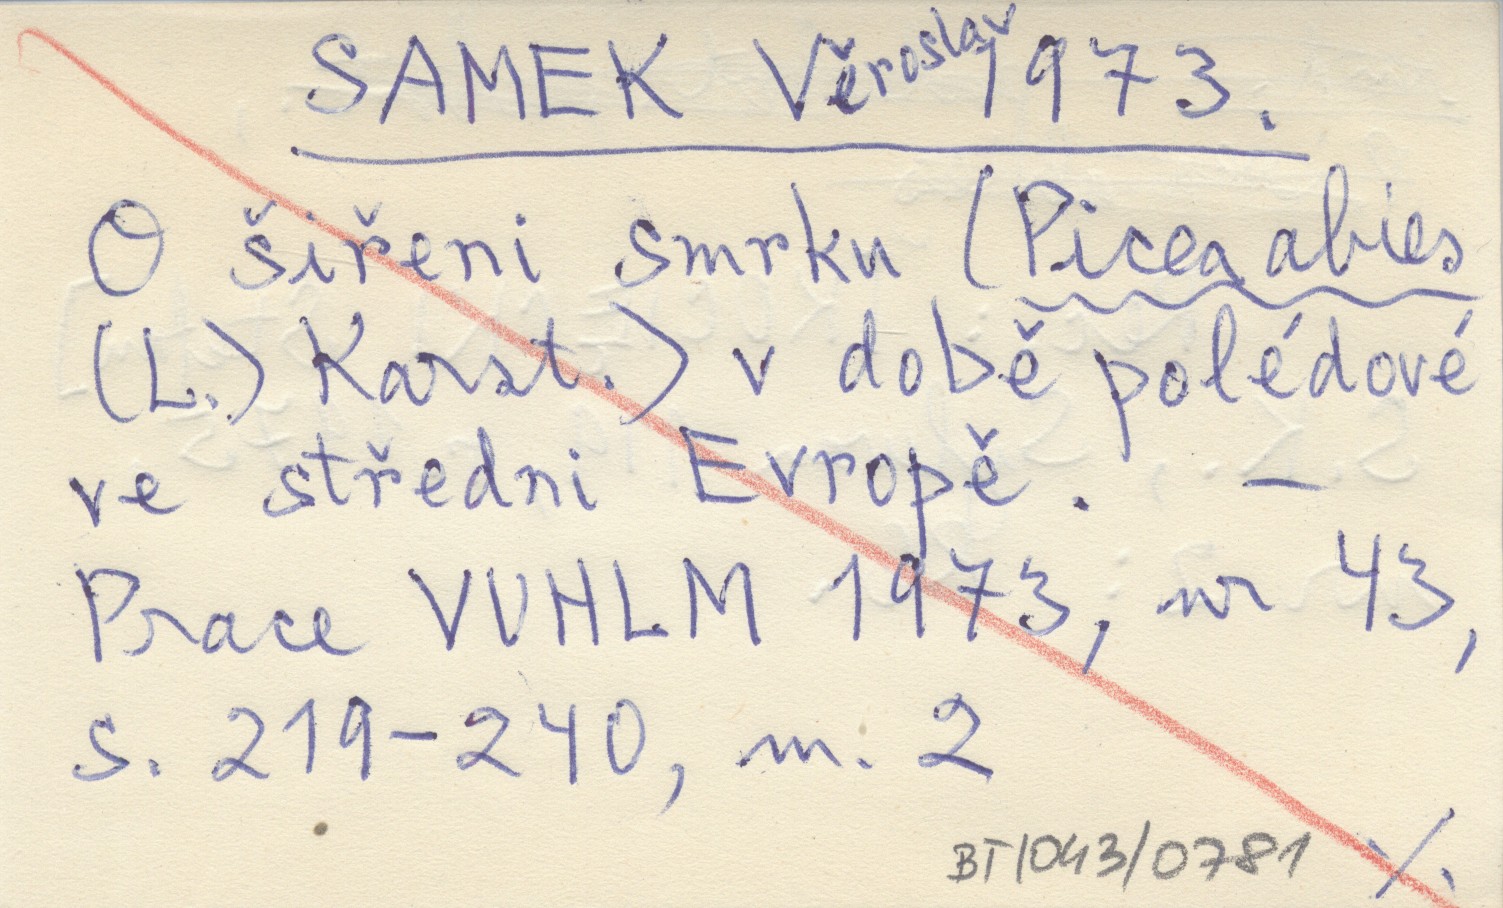 SAMEK Věroslav 1973.
O šiřeni smrku (Picea abies
(L.) Karst.) v době polédové
ve střředni Evropě. –
Prace VUHLM 1973, nr 43,
s. 219-240, m. 2
BT/043/0781 ./.